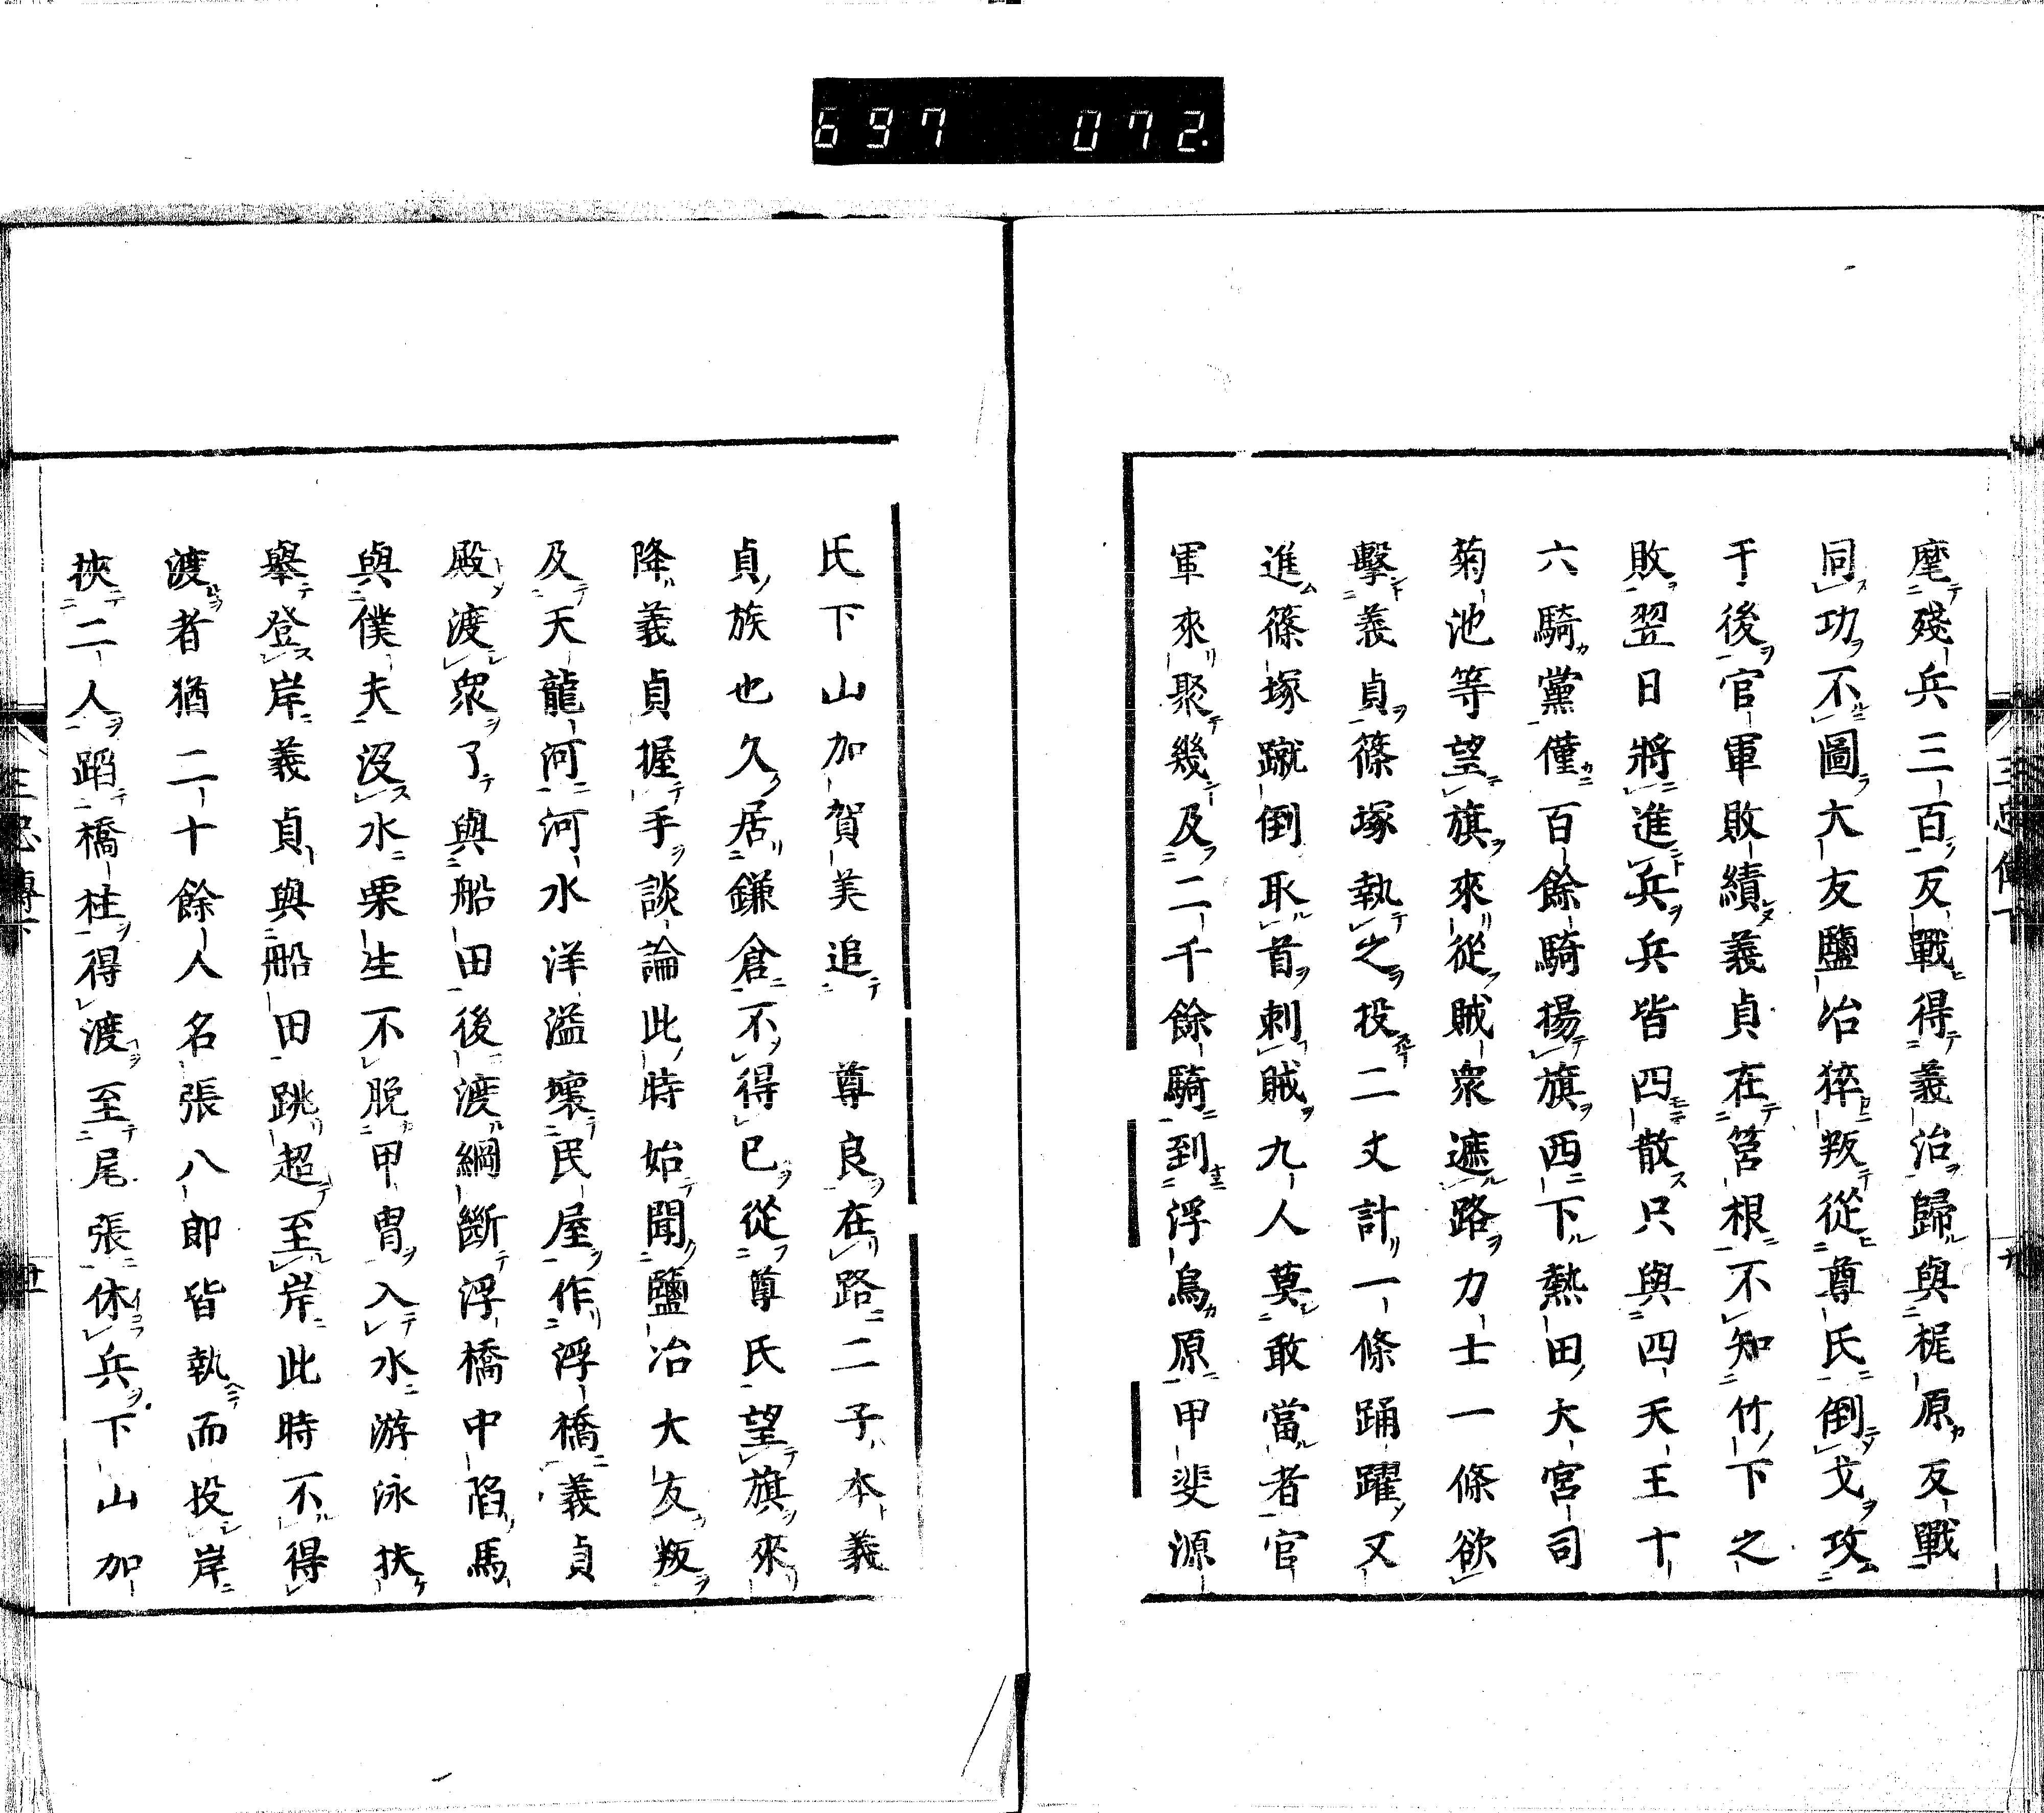 697 072.
麾殘兵三百反戰得義治歸與梶原反戰
同功不圖大友鹽冶猝叛從尊氏倒戈攻
于後官軍敗績義貞在筥根不知竹下之
敗翌日將進兵兵皆四散只與四天王十
六騎黨僅百餘騎揚旗西下熱田大宮司
菊池等望旗來從賊衆遮路力士一條欲
擊義貞篠塚執之投二丈計一條踊躍又
進篠塚蹴倒取首刺賊九人莫敢當者官
軍來聚幾及二千餘騎到浮島原甲斐源
氏下山加賀美追 尊良在路二子本義
貞族也久居鎌倉不得已從尊氏望旗來
降義貞握手談論此時始聞鹽冶大友叛
及天龍河河水洋溢壞民屋作浮橋義貞
殿渡衆了與船田後渡綱斷浮橋中陷馬
與僕夫沒水栗生不脫甲冑入水游泳扶
舉登岸義貞與船田跳超至岸此時不得
渡者猶二十餘人名張八郎皆執而投岸
挾二人蹈橋柱得渡至尾張休兵下山加